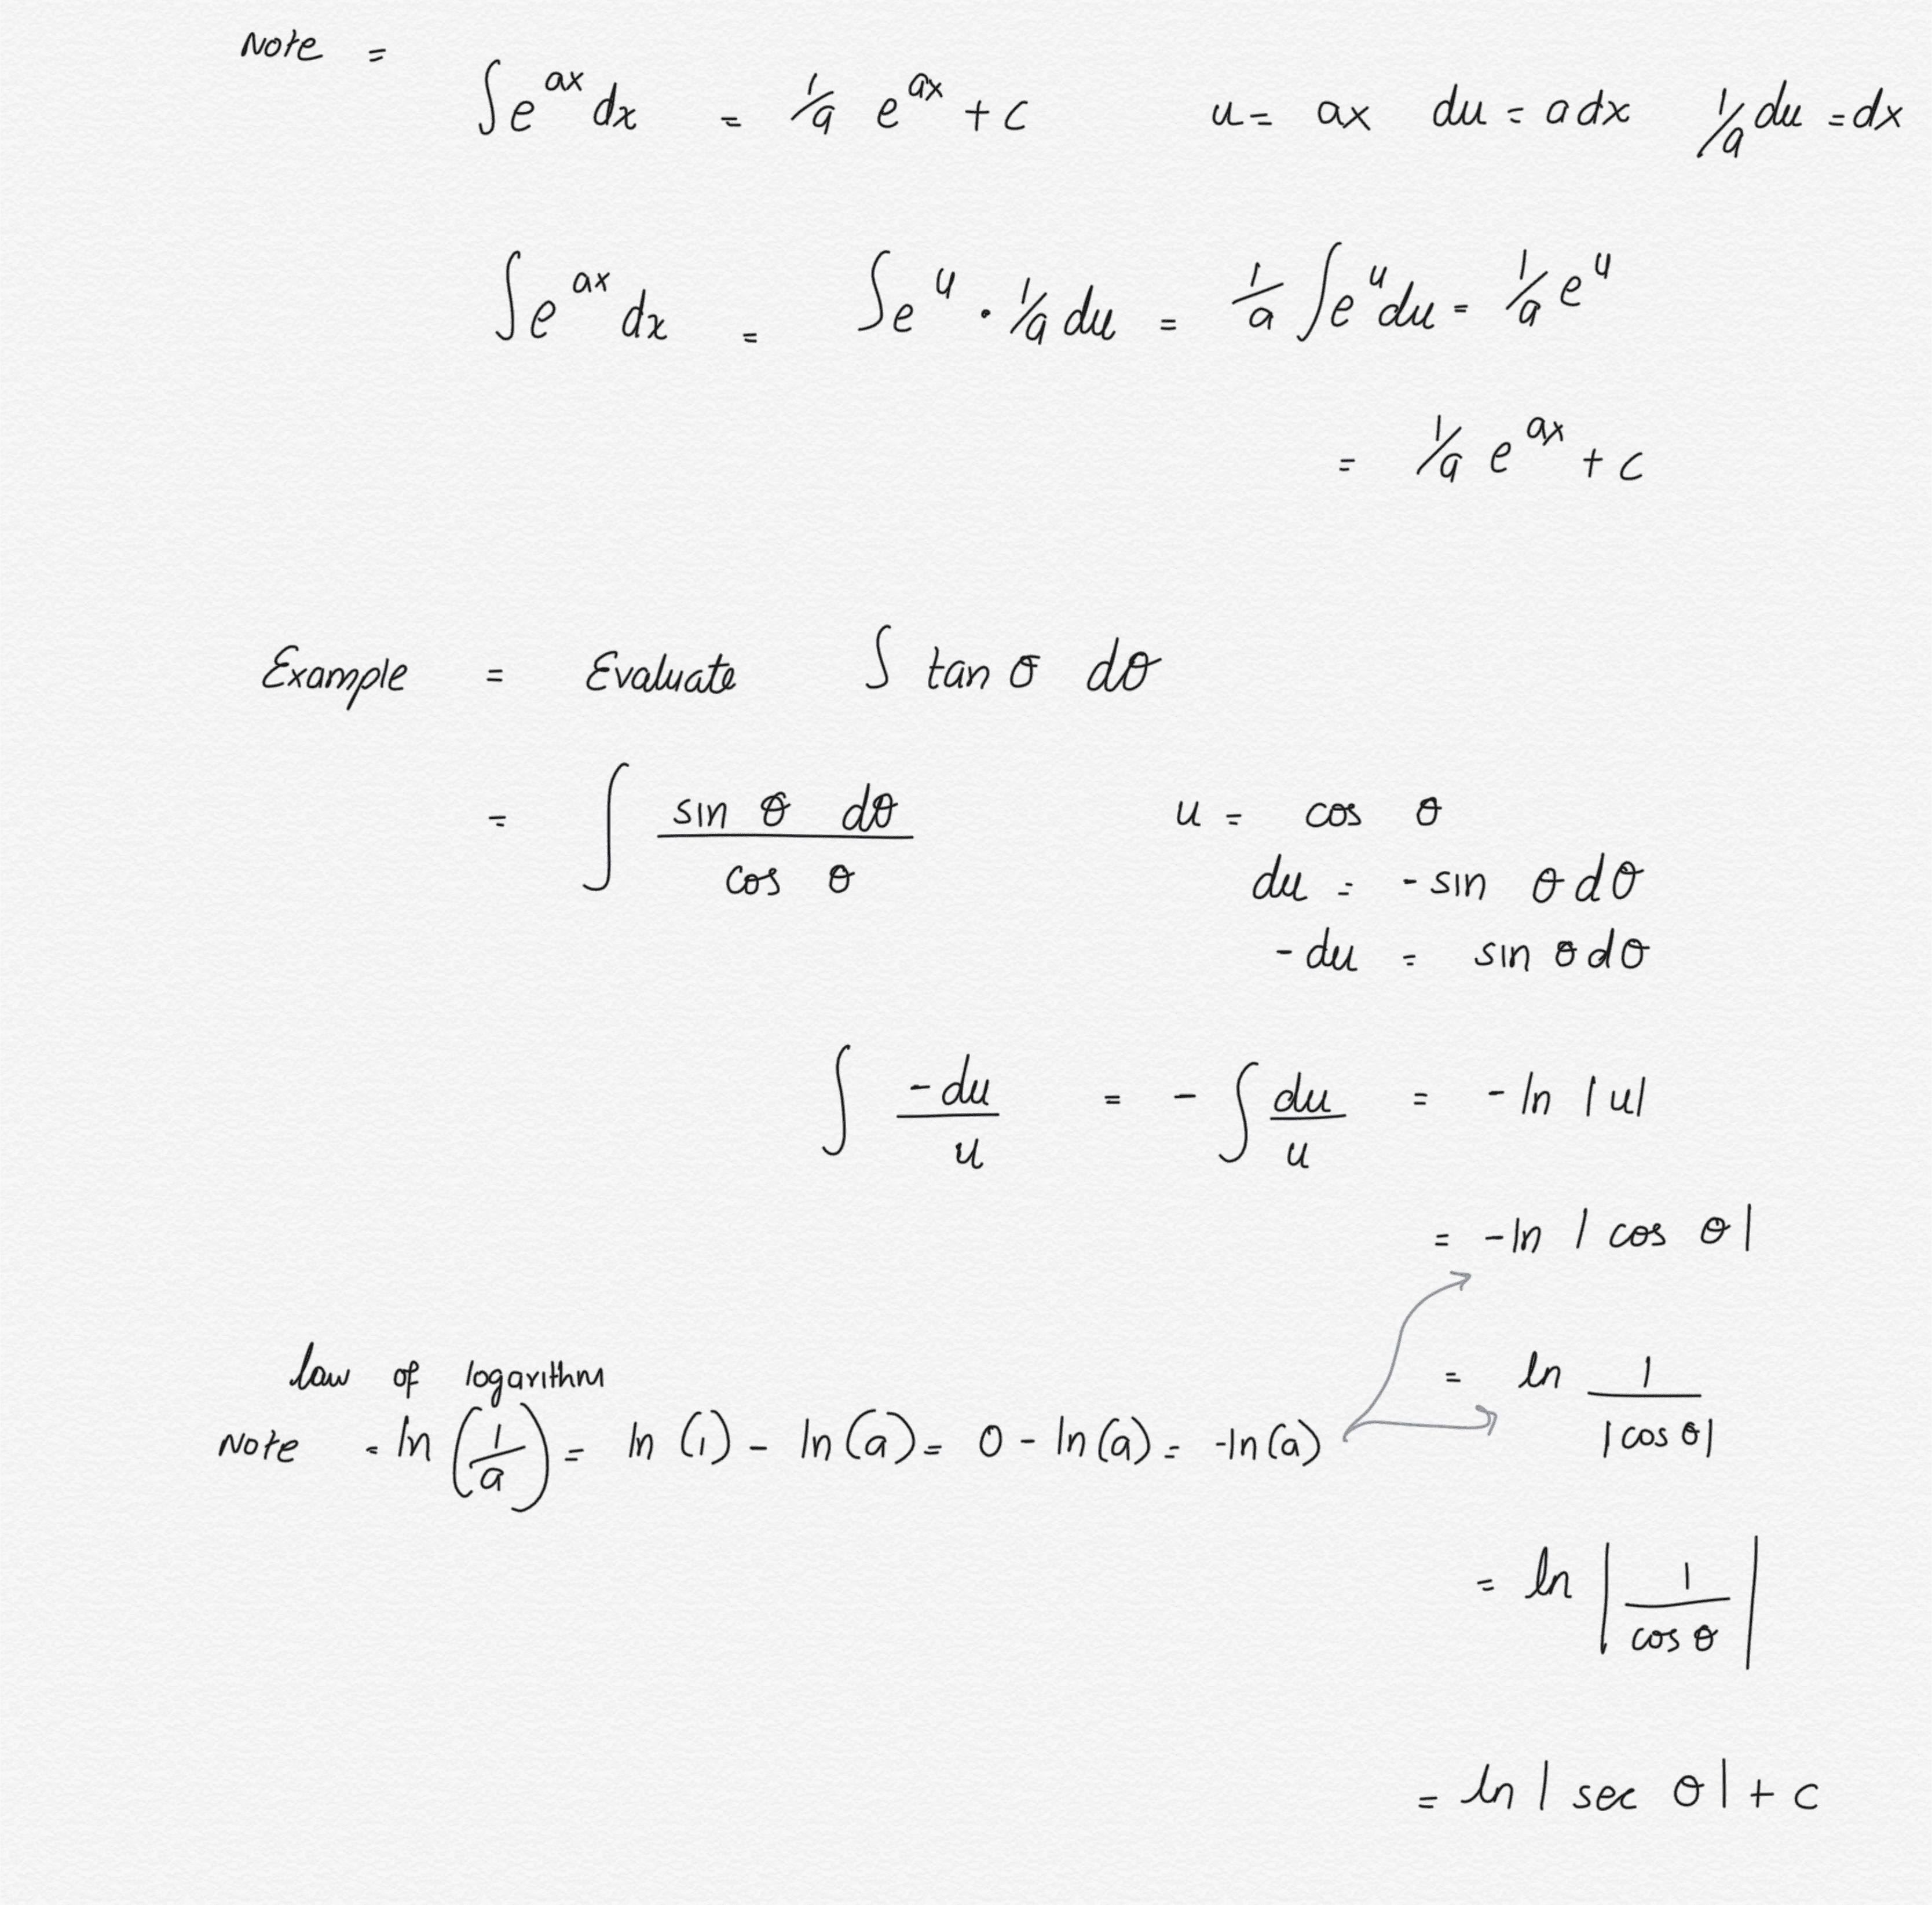 Note = ∫e^{ax} dx = 1/a e^{ax} + c u = ax du = a dx 1/a du = dx
∫e^{ax} dx = ∫e^u · 1/a du = 1/a ∫e^u du = 1/a e^u
= 1/a e^{ax} + c
Example = Evaluate ∫ tan θ dθ
= ∫ (sin θ dθ)/(cos θ) u = cos θ
du = - sin θ dθ
- du = sin θ dθ
∫ (-du)/u = - ∫ du/u = - ln |u|
= -ln | cos θ |
law of logarithm
= ln 1/|cos θ|
Note = ln (1/a) = ln (1) - ln (a) = 0 - ln (a) = -ln (a)
= ln | 1/cos θ |
= ln | sec θ | + c